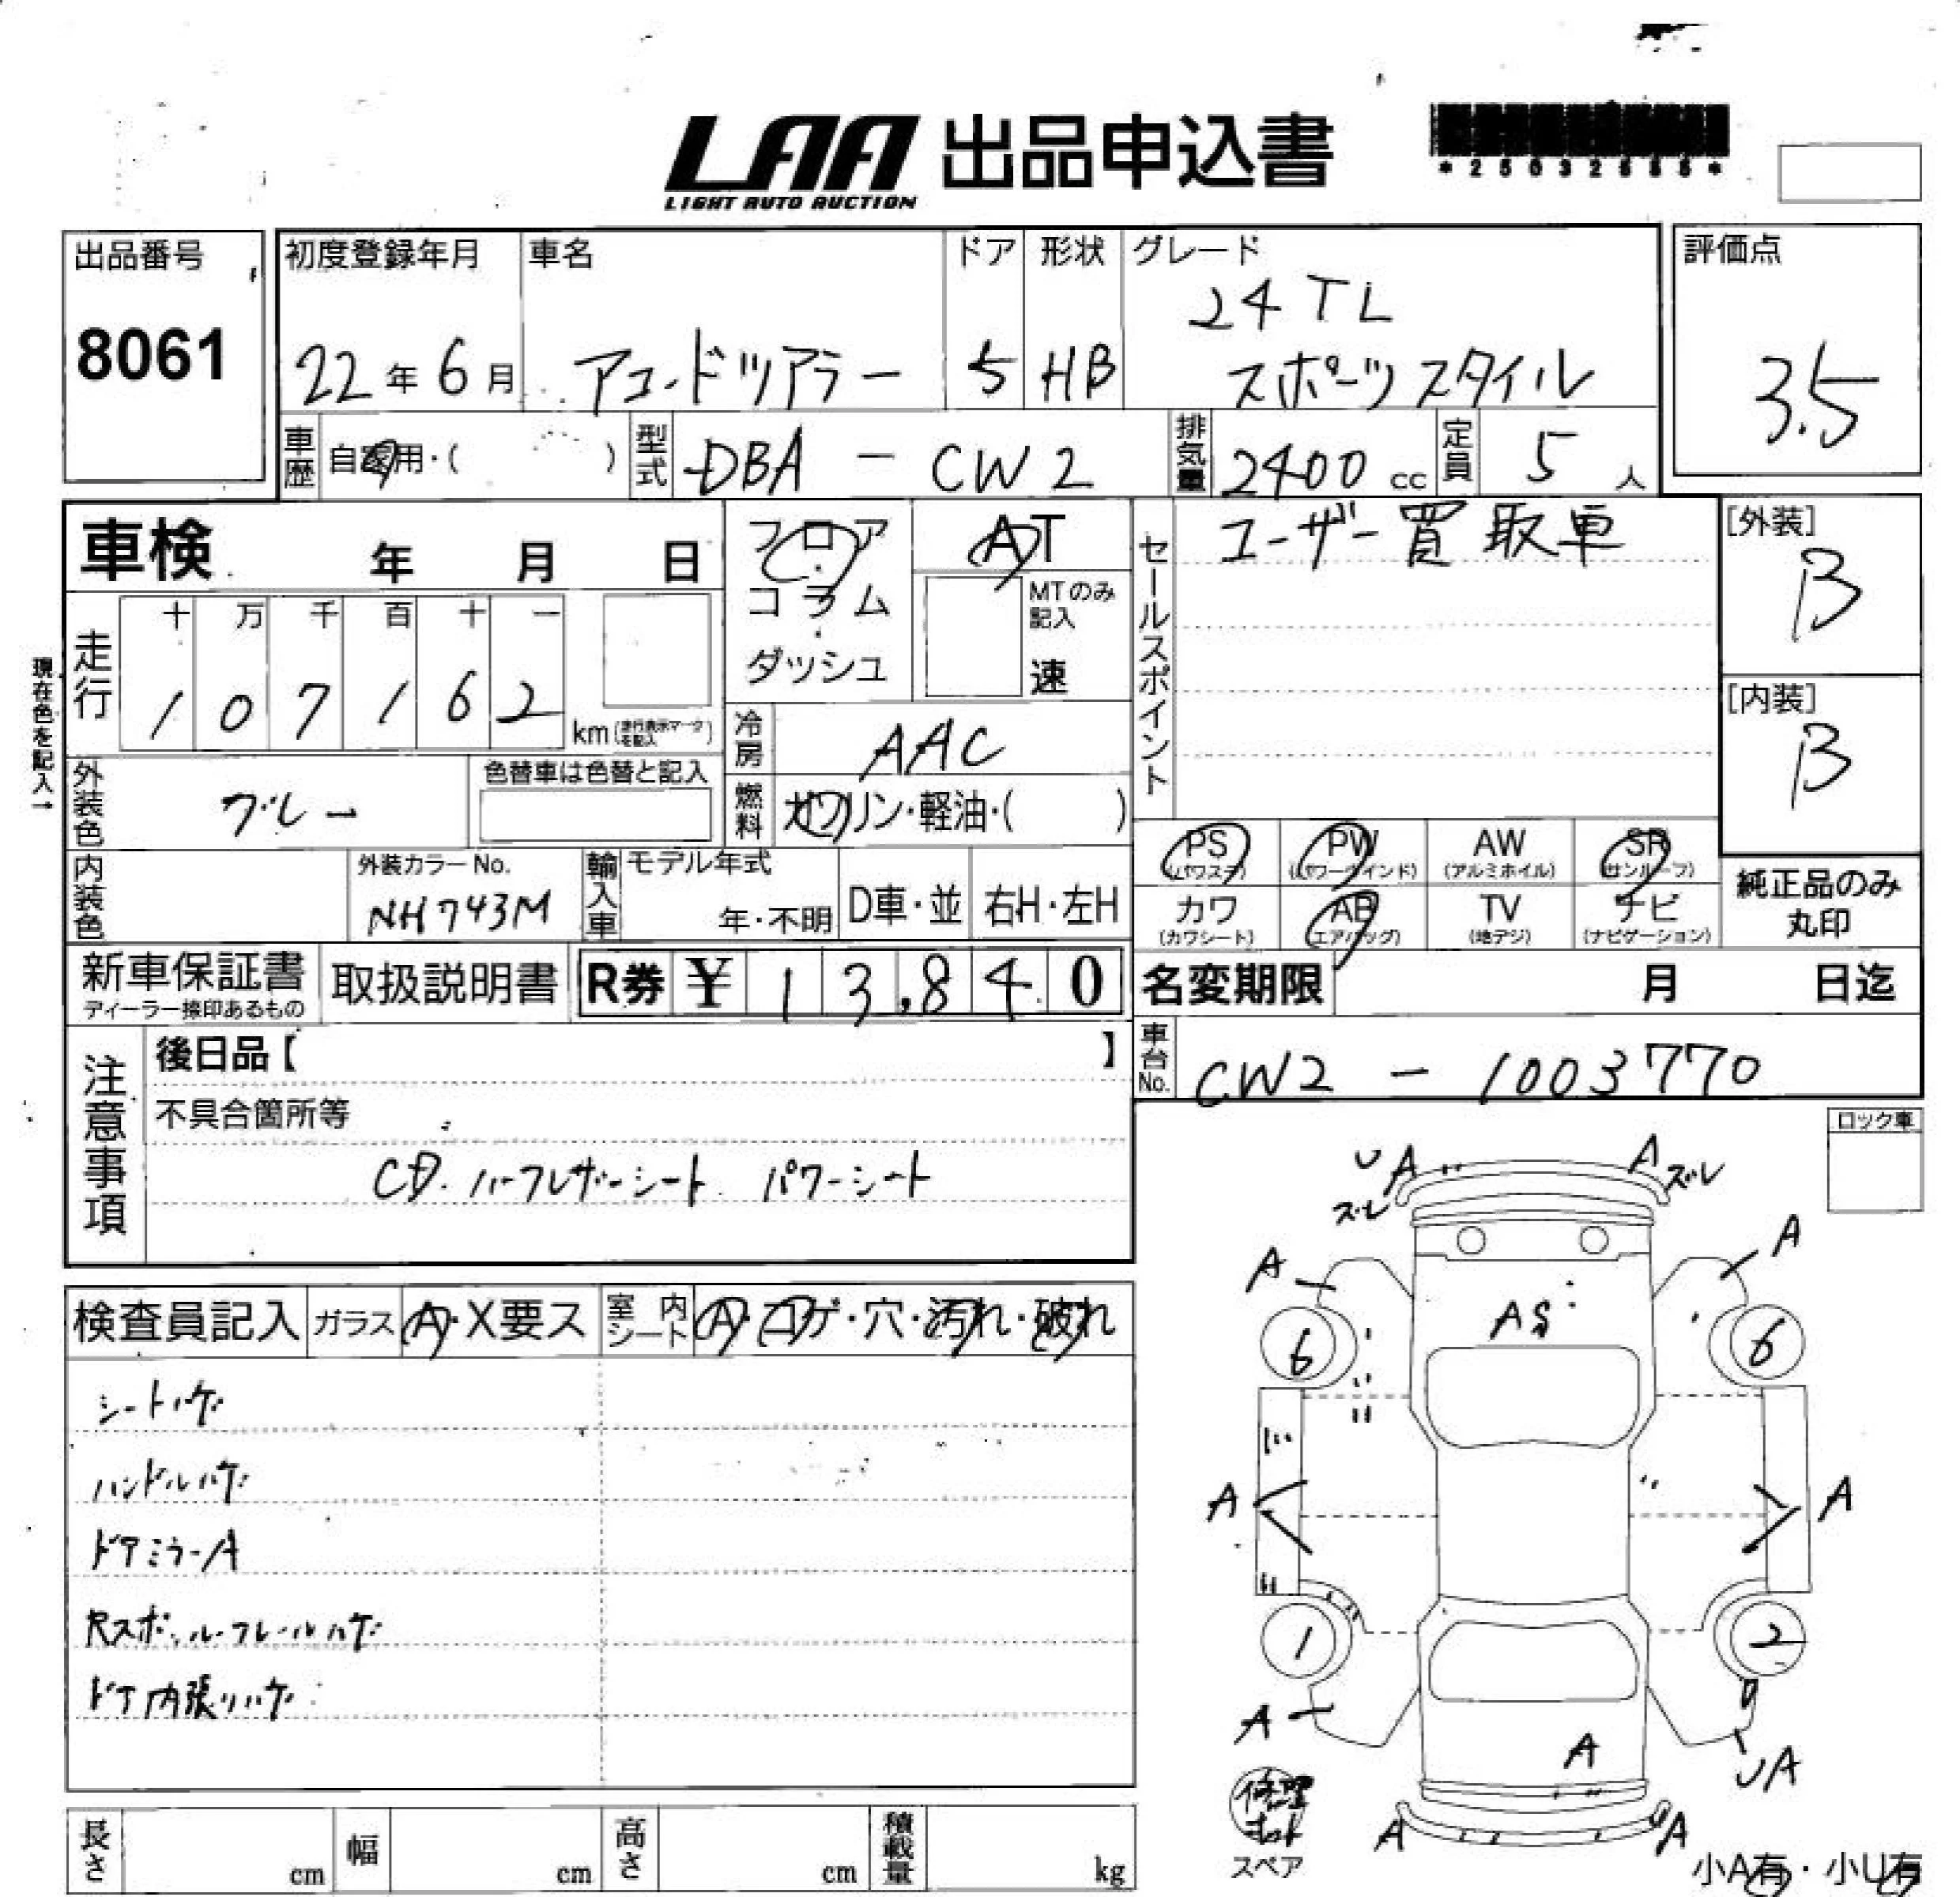 LAA 出品申込書
LIGHT AUTO AUCTION
出品番号
8061
初度登録年月
22年6月
車名
アコードツアラー
ドア
5
形状
HB
グレード
24TL
スポーツスタイル
評価点
3.5
車歴 自家用・( )
型式 DBA - CW2
排気量 2400 cc
定員 5 人
車検 年 月 日
フロア・コラム・ダッシュ
AT
MTのみ記入
速
セールスポイント
ユーザー買取車
[外装]
B
[内装]
B
現在色を記入→
走行
十 万 千 百 十 一
1 0 7 1 6 2
km (走行表示マークを記入)
冷房 AAC
燃料 ガソリン・軽油・( )
外装色 グレー
色替車は色替と記入
内装色
外装カラーNo.
NH743M
輸入車 モデル年式
年・不明
D車・並
右H・左H
PS (パワステ)
PW (パワーウインド)
AW (アルミホイル)
SR (サンルーフ)
カワ (カワシート)
AB (エアバッグ)
TV (地デジ)
ナビ (ナビゲーション)
純正品のみ
丸印
新車保証書
ディーラー捺印あるもの
取扱説明書
R券 ¥ 13,840
名変期限 月 日迄
車台No. CW2 - 1003770
注意事項
後日品【 】
不具合箇所等
CD. ハーフレザーシート パワーシート
ロック車
検査員記入
ガラス A・X要ス
室内シート A・コゲ・穴・汚れ・破れ
シートハゲ
ハンドルハゲ
ドアミラーA
Rスポ.ルーフレールハゲ
ドア内張りハゲ
U A
ズレ
A ズレ
A
A
AS
6
6
A
A
1
2
A
A
UA
A
UA
修理キット
スペア
小A有・小U有
長さ cm
幅 cm
高さ cm
積載量 kg